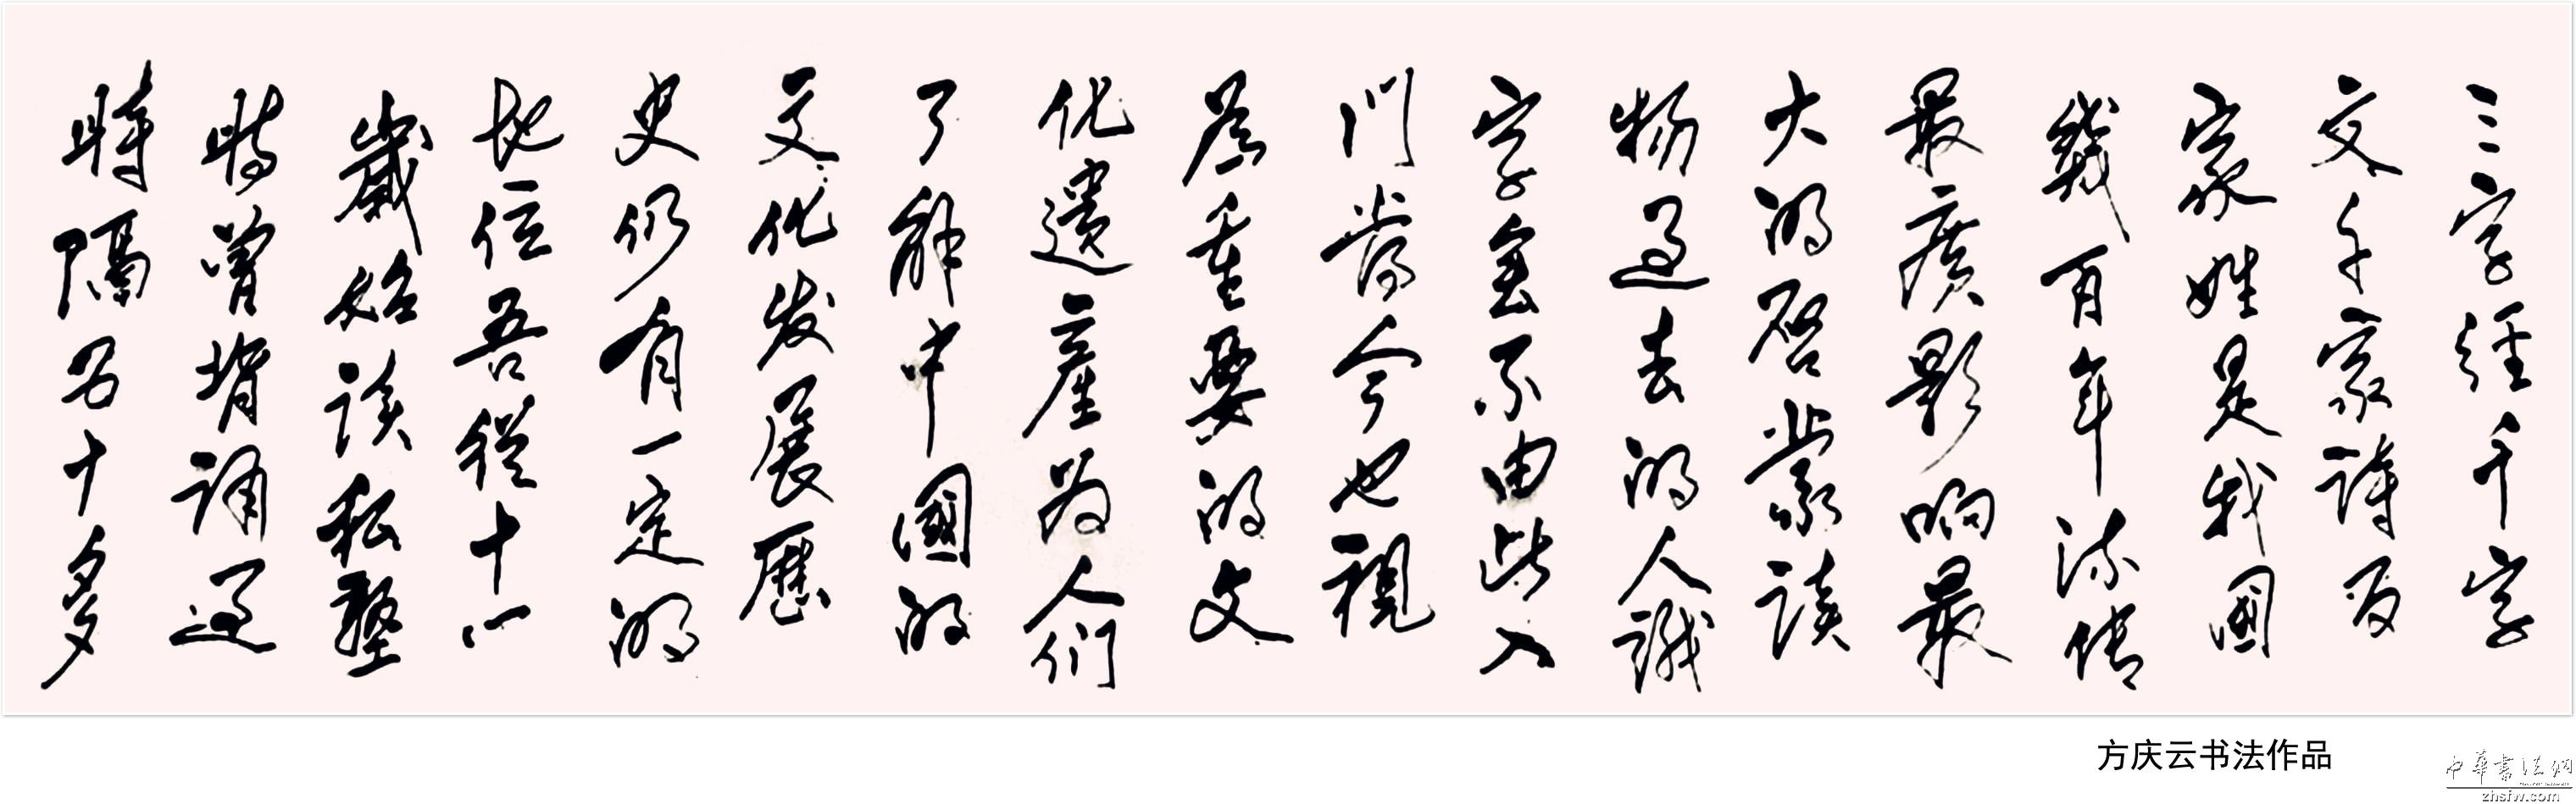 三字经千字
文千家诗百
家姓是我國
几百年流传
最广影响最
大的启蒙读
物过去的人識
字无不由此入
门當今也視
為重要的文
化遗産为人们
了解中國的
文化发展歷
史仍有一定的
地位吾從十一
歲始读私塾
時曾背诵过
時隔五十多
方庆云书法作品
中華書法網
zhsfw.com